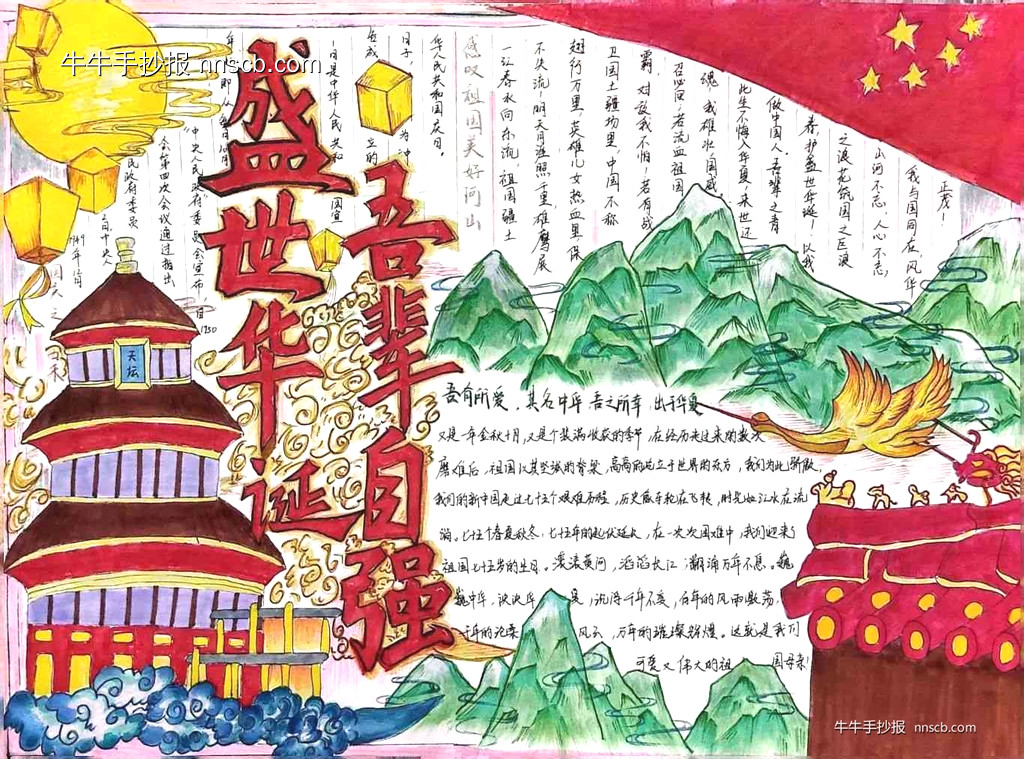 牛牛手抄报 nnscb.com
盛世华诞
吾辈自强
天坛
1949年12月
民政府委员
会第四次会议通过指出
“中央人民政府”委员会宣布:自1950
年即从每年10月
1日是中华人民共和国宣
告成立的
日子,
华人民共和国国庆日.
感叹祖国美好河山
一江春水向东流,祖国疆土
不失流!明天月涯照千里,雄鹰展
翅行万里,英雄儿女热血里,保
卫国土疆场里,中国不称
霸,对敌我不怕!若有战
召必回,若流血祖国
魂 我雄壮国威
此生不悔入华夏,来世还
做中国人.吾辈之青
春,护盛世华诞!以我
之浪花筑国之巨浪
山河不忘,人心不忘
我与国同在,风华
正茂!
吾有所爱,其名中华 吾之所幸,出于华夏
又是一年金秋十月,又是个装满收获的季节,在经历过过来的数次
磨难后,祖国以其坚强的脊梁,高高的屹立于世界的东方,我们为此骄傲,
我们的新中国走过七十五个艰难历程,历史属车轮在飞转,时光如江水在流
淌。七十五个春夏秋冬,七十五年的起伏延长,在一次次国难中,我们迎来了
祖国七十五岁的生日。滚滚黄河,滔滔长江,潮涌万年不息。巍
巍中华,泱泱华夏,流传千年不衰,百年的风雨激荡,
千年的沧桑风云,万年的璀璨辉煌。这就是我们
可爱又伟大的祖国母亲!
牛牛手抄报 nnscb.com